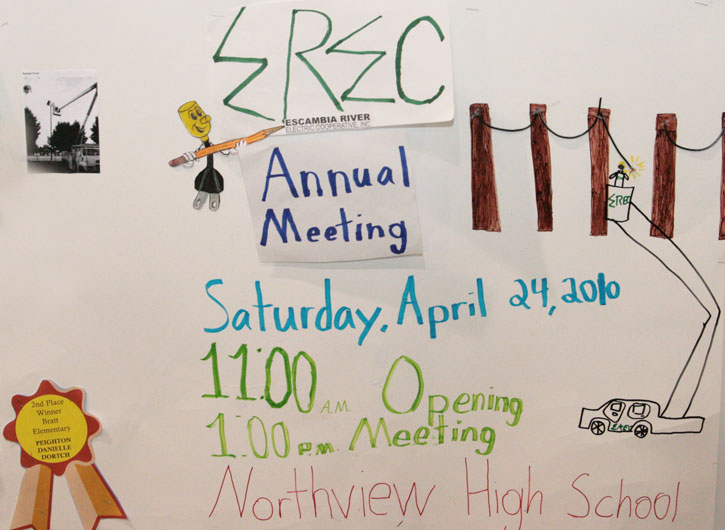 EREC
ESCAMBIA RIVER
ELECTRIC COOPERATIVE, INC.
Annual
Meeting
EREC
Saturday, April 24, 2010
11:00 A.M. Opening
1:00 P.M. Meeting
EREC
Northview High School
2nd Place
Winner
Bratt
Elementary
PEIGHTON
DANIELLE
DORTCH